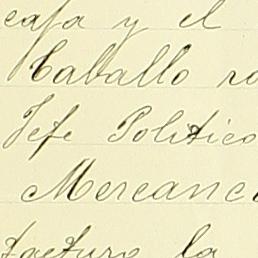 casa y el
Caballo ro
Jefe Politico
Mercanc
facturo la